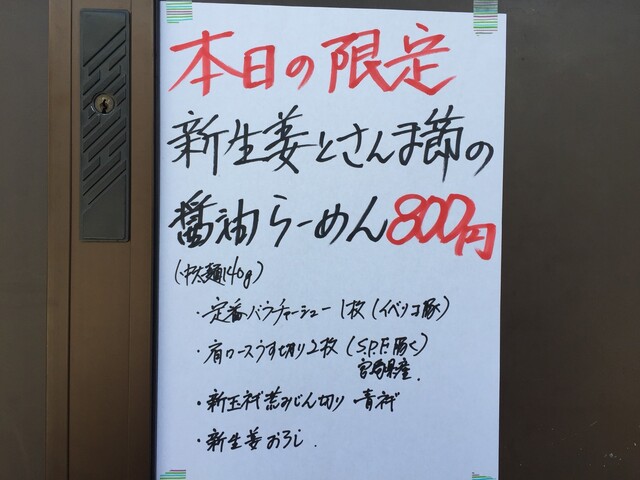 本日の限定
新生姜とさんま節の
醤油らーめん800円
(中太麺140g)
・定番バラチャーシュー1枚(イベリコ豚)
・肩ロースうす切り2枚(S.P.F.豚く)
宮崎県産.
・新玉ネギ荒みじん切り 青ネギ
・新生姜おろし.